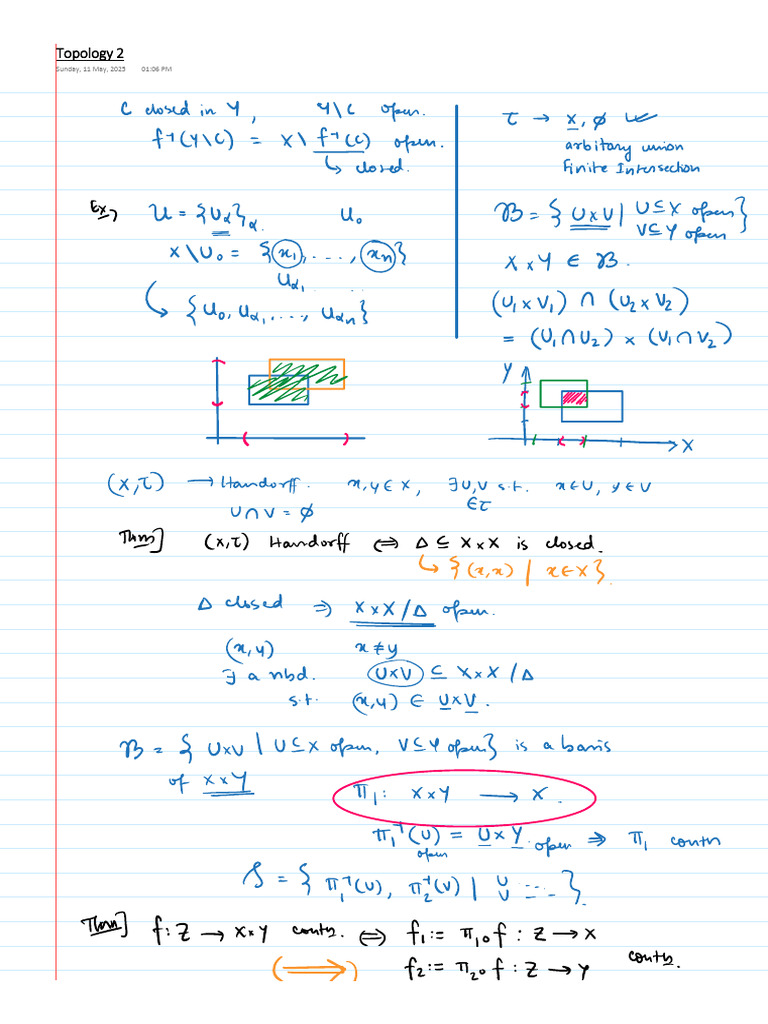 Topology 2
Sunday, 11 May, 2025 01:06 PM
C closed in Y, Y\C open.
f⁻¹(Y\C) = X\f⁻¹(C) open.
↳ closed.
τ → X, ∅
arbitary union
Finite Intersection
Ex) 𝒰 = {Uα}α. U₀
X\U₀ = {x₁, ..., xₙ}
Uα₁ ...
↳ {U₀, Uα₁, ..., Uαₙ}
ℬ = {U×V | U⊆X open, V⊆Y open}
X×Y ∈ ℬ.
(U₁×V₁) ∩ (U₂×V₂)
= (U₁∩U₂) × (V₁∩V₂)
Y
X
(X,τ) → Handorff. x,y∈X, ∃U,V s.t. x∈U, y∈V
∈τ
U∩V = ∅
Thm] (X,τ) Handorff ⟺ Δ ⊆ X×X is closed.
↳ {(x,x) | x∈X}.
Δ closed ⇒ X×X/Δ open.
(x,y) x≠y
∃ a nbd. U×V ⊆ X×X/Δ
s.t. (x,y) ∈ U×V.
ℬ = {U×V | U⊆X open, V⊆Y open} is a basis
of X×Y
π₁: X×Y → X.
π₁⁻¹(U) = U×Y open ⇒ π₁ contn
open
𝒮 = {π₁⁻¹(U), π₂⁻¹(V) | U V ---..}.
Thm] f: Z → X×Y contn. ⟺ f₁ := π₁∘f : Z → X
(⟹) f₂ := π₂∘f : Z → Y contn.